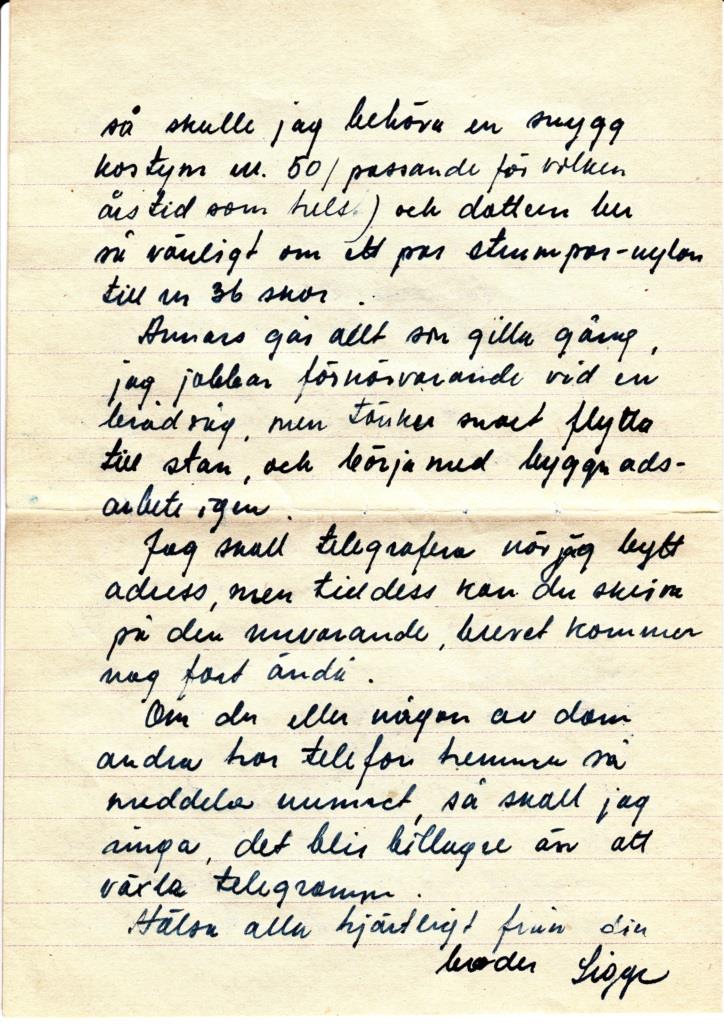 så skulle jag behöva en snygg
kostym nr. 50 / passande för vilken
årstid som helst) och dottern ber
så vänligt om ett par strumpor-nylon
till nr 36 skor.
Annars går allt sin gilla gång,
jag jobbar förnärvarande vid en
brädsåg, men tänker snart flytta
till stan, och börja med byggnads-
arbete igen.
Jag skall telegrafera när jag bytt
adress, men tilldess kan du skriva
på den nuvarande, brevet kommer
nog fort ändå.
Om du eller någon av dom
andra har telefon hemma så
meddela numret, så skall jag
ringa, det blir billagre än att
växla telegramm.
Hälsa alla hjärtligt från din
broder Sigge